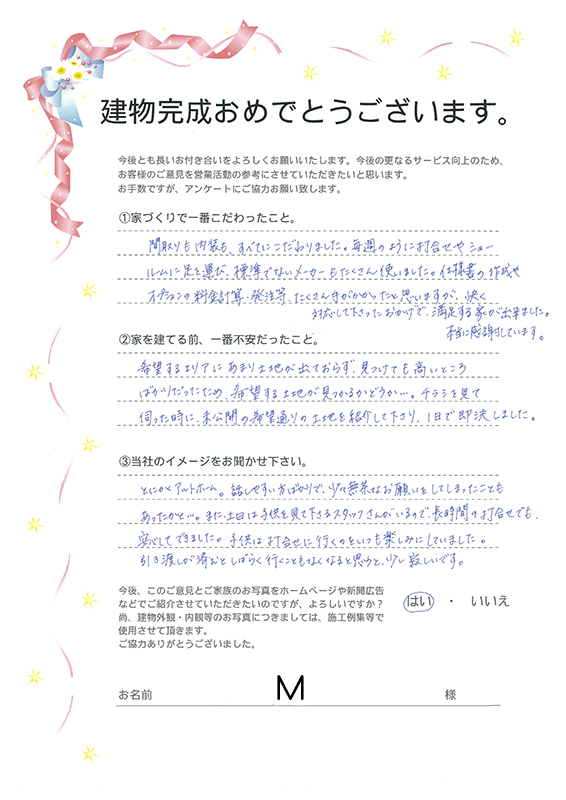 建物完成おめでとうございます。
今後とも長いお付き合いをよろしくお願いいたします。今後の更なるサービス向上のため、
お客様のご意見を営業活動の参考にさせていただきたいと思います。
お手数ですが、アンケートにご協力お願い致します。
①家づくりで一番こだわったこと。
間取りも内装も、すべてにこだわりました。毎週のように打合せやショー
ルームに足を運び、標準でないメーカーもたくさん使いました。仕様書の作成や
オプションの料金計算・発注等、たくさん手がかかったと思いますが、快く
対応して下さったおかげで、満足する家が出来ました。
本当に感謝しています。
②家を建てる前、一番不安だったこと。
希望するエリアにあまり土地が出ておらず、見つけても高いところ
ばかりだったため、希望する土地が見つかるかどうか…。チラシを見て
伺った時に、未公開の希望通りの土地を紹介して下さり、1日で即決しました。
③当社のイメージをお聞かせ下さい。
とにかくアットホーム。話しやすい方ばかりで、少々無茶なお願いをしてしまったことも
あったかと…。また、土日は子供を見て下さるスタッフさんがいるので、長時間の打合せでも、
安心してできました。子供は打合せに行くのをいつも楽しみにしていました。
引き渡しが済むとしばらく行くこともなくなると思うと、少し寂しいです。
今後、このご意見とご家族のお写真をホームページや新聞広告
などでご紹介させていただきたいのですが、よろしいですか？
はい ・ いいえ
尚、建物外観・内観等のお写真につきましては、施工例集等で
使用させて頂きます。
ご協力ありがとうございました。
お名前 M 様